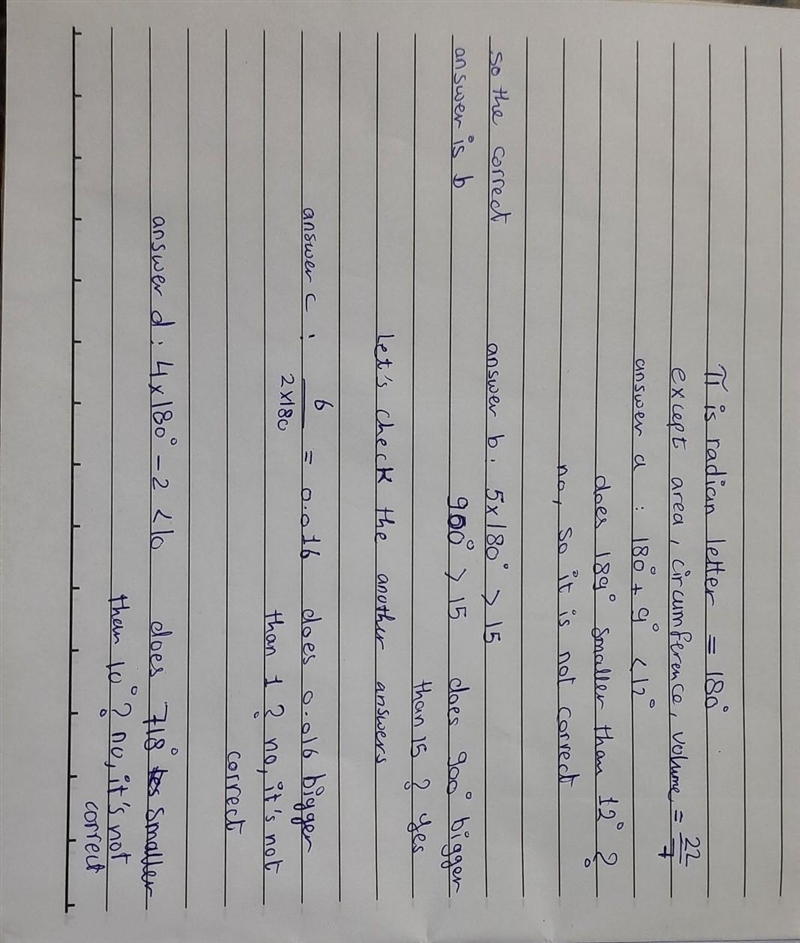 π is radian letter = 180°
except area, circumference, volume = 22/7
answer a : 180° + 9° < 12°
does 189° smaller than 12° ?
no, so it is not correct
so the correct answer b. 5x180° > 15
answer is b 900° > 15 does 900° bigger
than 15 ? yes
Let's check the another answers
answer c : 6/2x180 = 0.016 does 0.016 bigger
than 1 ? no, it's not
correct
answer d : 4x180° - 2 < 10 does 718° smaller
than 10° ? no, it's not
correct